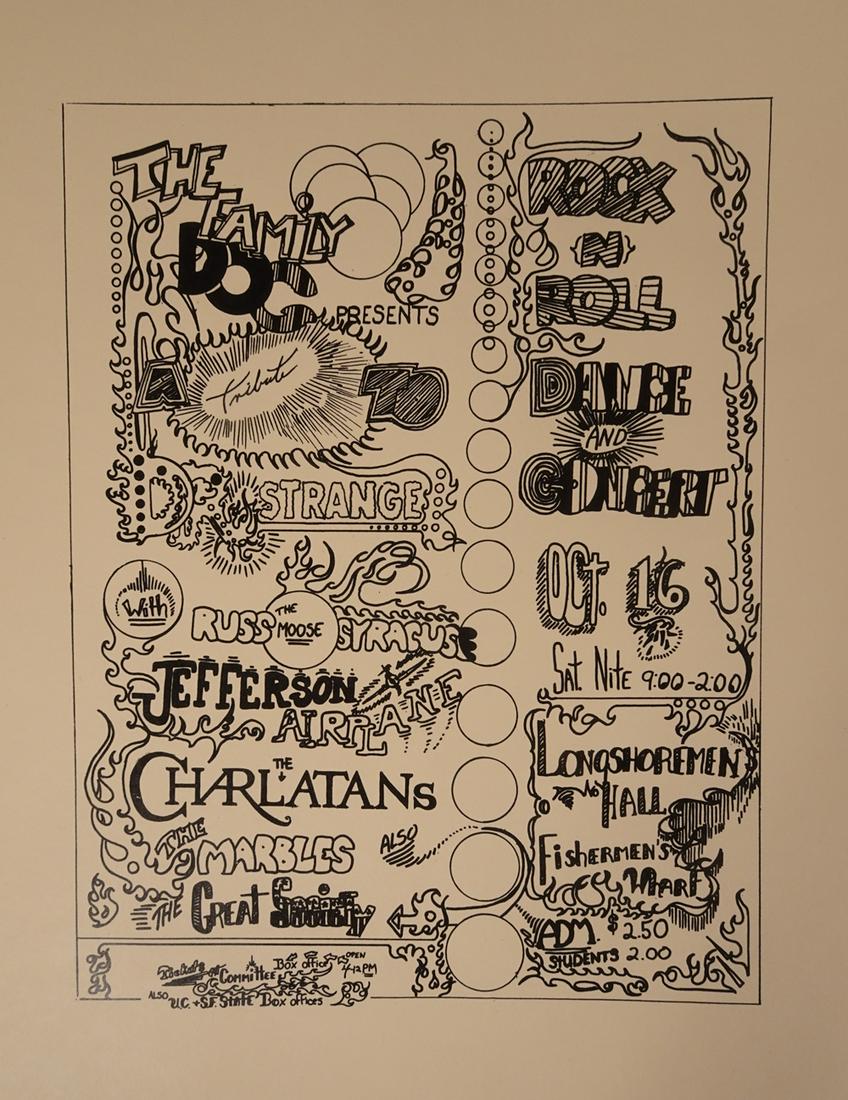 THE
FAMiLY
DOG
PRESENTS
A tribute TO
DR. STRANGE
With
RUSS THE MOOSE SYRACUSE
JEFFERSON
AIRPLANE
THE
CHARLATANS
THE
MARBLES
ALSO
THE GREAT SOCiETY
COMMITTEE Box offiCE OPEN
4-12 PM
ALSO U.C. + S.F. STATE Box offices
ROCK
{N}
ROLL
DANCE
AND
CONCERT
OCT. 16
SAT. NiTE 9:00-2:00
LONGSHOREMEN'S
HALL
FisHERMEN'S
WHARF
ADM. $2.50
STUDENTS 2.00